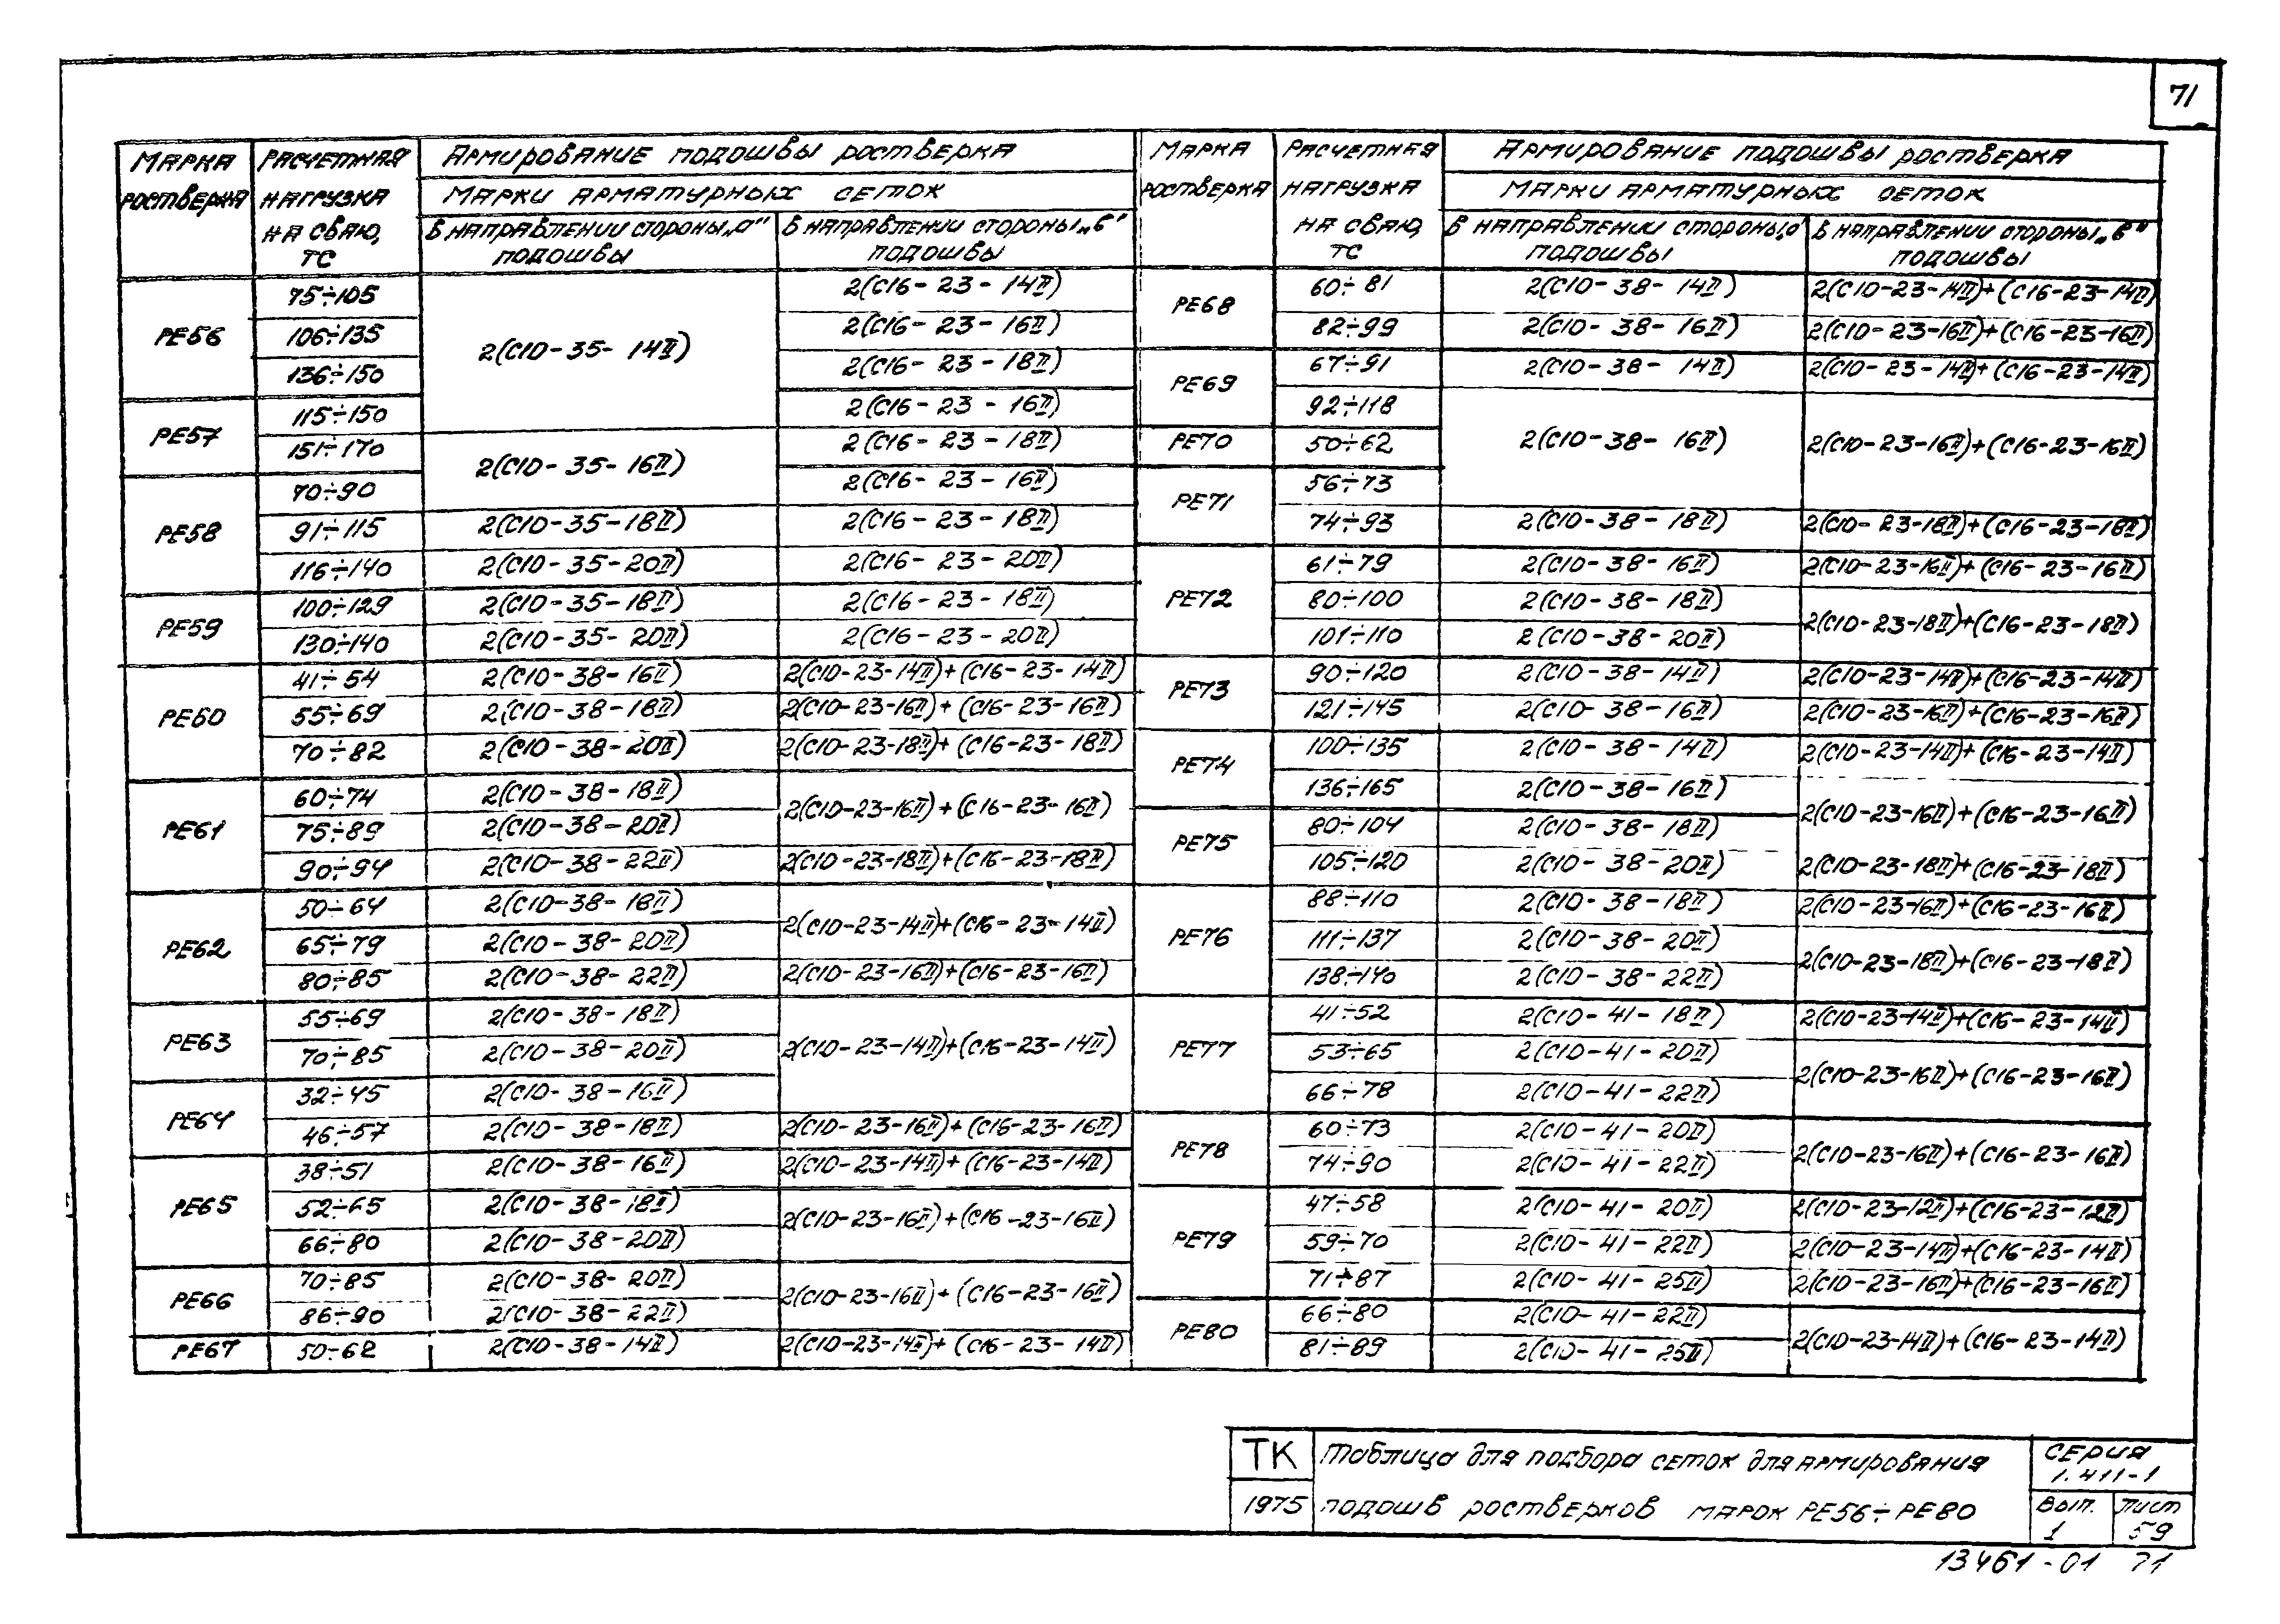 71
МАРКА РОСТВЕРКА
РАСЧЕТНАЯ НАГРУЗКА НА СВАЮ, ТС
АРМИРОВАНИЕ ПОДОШВЫ РОСТВЕРКА
МАРКИ АРМАТУРНЫХ СЕТОК
В НАПРАВЛЕНИИ СТОРОНЫ „а" ПОДОШВЫ
В НАПРАВЛЕНИИ СТОРОНЫ „в" ПОДОШВЫ
РЕ56
75÷105 2(С10-35-14II) 2(С16-23-14II)
106÷135 2(С16-23-16II)
136÷150 2(С16-23-18II)
РЕ57
115÷150 2(С16-23-16II)
151÷170 2(С10-35-16II) 2(С16-23-18II)
РЕ58
70÷90 2(С16-23-16II)
91÷115 2(С10-35-18II) 2(С16-23-18II)
116÷140 2(С10-35-20II) 2(С16-23-20II)
РЕ59
100÷129 2(С10-35-18II) 2(С16-23-18II)
130÷140 2(С10-35-20II) 2(С16-23-20II)
РЕ60
41÷54 2(С10-38-16II) 2(С10-23-14II)+(С16-23-14II)
55÷69 2(С10-38-18II) 2(С10-23-16II)+(С16-23-16II)
70÷82 2(С10-38-20II) 2(С10-23-18II)+(С16-23-18II)
РЕ61
60÷74 2(С10-38-18II) 2(С10-23-16II)+(С16-23-16II)
75÷89 2(С10-38-20II)
90÷94 2(С10-38-22II) 2(С10-23-18II)+(С16-23-18II)
РЕ62
50÷64 2(С10-38-18II) 2(С10-23-14II)+(С16-23-14II)
65÷79 2(С10-38-20II)
80÷85 2(С10-38-22II) 2(С10-23-16II)+(С16-23-16II)
РЕ63
55÷69 2(С10-38-18II) 2(С10-23-14II)+(С16-23-14II)
70÷85 2(С10-38-20II)
РЕ64
32÷45 2(С10-38-16II)
46÷57 2(С10-38-18II) 2(С10-23-16II)+(С16-23-16II)
РЕ65
38÷51 2(С10-38-16II) 2(С10-23-14II)+(С16-23-14II)
52÷65 2(С10-38-18II) 2(С10-23-16II)+(С16-23-16II)
66÷80 2(С10-38-20II)
РЕ66
70÷85 2(С10-38-20II) 2(С10-23-16II)+(С16-23-16II)
86÷90 2(С10-38-22II)
РЕ67
50÷62 2(С10-38-14II) 2(С10-23-14II)+(С16-23-14II)
МАРКА РОСТВЕРКА
РАСЧЕТНАЯ НАГРУЗКА НА СВАЮ, ТС
АРМИРОВАНИЕ ПОДОШВЫ РОСТВЕРКА
МАРКИ АРМАТУРНЫХ СЕТОК
В НАПРАВЛЕНИИ СТОРОНЫ „а" ПОДОШВЫ
В НАПРАВЛЕНИИ СТОРОНЫ „в" ПОДОШВЫ
РЕ68
60÷81 2(С10-38-14II) 2(С10-23-14II)+(С16-23-14II)
82÷99 2(С10-38-16II) 2(С10-23-16II)+(С16-23-16II)
РЕ69
67÷91 2(С10-38-14II) 2(С10-23-14II)+(С16-23-14II)
92÷118 2(С10-38-16II) 2(С10-23-16II)+(С16-23-16II)
РЕ70
50÷62
РЕ71
56÷73
74÷93 2(С10-38-18II) 2(С10-23-18II)+(С16-23-18II)
РЕ72
61÷79 2(С10-38-16II) 2(С10-23-16II)+(С16-23-16II)
80÷100 2(С10-38-18II) 2(С10-23-18II)+(С16-23-18II)
101÷110 2(С10-38-20II)
РЕ73
90÷120 2(С10-38-14II) 2(С10-23-14II)+(С16-23-14II)
121÷145 2(С10-38-16II) 2(С10-23-16II)+(С16-23-16II)
РЕ74
100÷135 2(С10-38-14II) 2(С10-23-14II)+(С16-23-14II)
136÷165 2(С10-38-16II) 2(С10-23-16II)+(С16-23-16II)
РЕ75
80÷104 2(С10-38-18II)
105÷120 2(С10-38-20II) 2(С10-23-18II)+(С16-23-18II)
РЕ76
88÷110 2(С10-38-18II) 2(С10-23-16II)+(С16-23-16II)
111÷137 2(С10-38-20II) 2(С10-23-18II)+(С16-23-18II)
138÷140 2(С10-38-22II)
РЕ77
41÷52 2(С10-41-18II) 2(С10-23-14II)+(С16-23-14II)
53÷65 2(С10-41-20II) 2(С10-23-16II)+(С16-23-16II)
66÷78 2(С10-41-22II)
РЕ78
60÷73 2(С10-41-20II) 2(С10-23-16II)+(С16-23-16II)
74÷90 2(С10-41-22II)
РЕ79
47÷58 2(С10-41-20II) 2(С10-23-12II)+(С16-23-12II)
59÷70 2(С10-41-22II) 2(С10-23-14II)+(С16-23-14II)
71÷87 2(С10-41-25II) 2(С10-23-16II)+(С16-23-16II)
РЕ80
66÷80 2(С10-41-22II) 2(С10-23-14II)+(С16-23-14II)
81÷89 2(С10-41-25II)
ТК
1975
Таблица для подбора сеток для армирования
подошв ростверков марок РЕ56÷РЕ80
СЕРИЯ
1.411-1
Вып.
1
Лист
59
13461-01 71